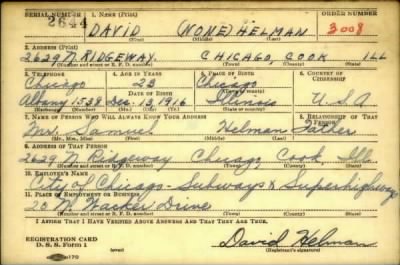 SERIAL NUMBER 1. NAME (Print) ORDER NUMBER
2644 DAVID (NONE) HELMAN 3008
(First) (Middle) (Last)
2. ADDRESS (Print)
2629 N. RIDGEWAY. CHICAGO, COOK ILL
(Number and street or R. F. D. number) (Town) (County) (State)
3. TELEPHONE 4. AGE IN YEARS 5. PLACE OF BIRTH 6. COUNTRY OF CITIZENSHIP
Chicago 23 Chicago
DATE OF BIRTH (Town or county)
Albany 1538 Dec. 13, 1916 Illinois U.S.A
7. NAME OF PERSON WHO WILL ALWAYS KNOW YOUR ADDRESS 8. RELATIONSHIP OF THAT PERSON
Mr. Samuel Helman Father
(Mr., Mrs., Miss) (First) (Middle) (Last)
9. ADDRESS OF THAT PERSON
2629 N. Ridgeway Chicago, Cook, Ill.
(Number and street or R. F. D. number) (Town) (County) (State)
10. EMPLOYER'S NAME
City of Chicago - Subways & Superhighways
11. PLACE OF EMPLOYMENT OR BUSINESS
20 N. Wacker Drive
(Number and street or R. F. D. number) (Town) (County) (State)
I AFFIRM THAT I HAVE VERIFIED ABOVE ANSWERS AND THAT THEY ARE TRUE.
REGISTRATION CARD
D. S. S. Form 1 David Helman
(over) (Registrant's signature)